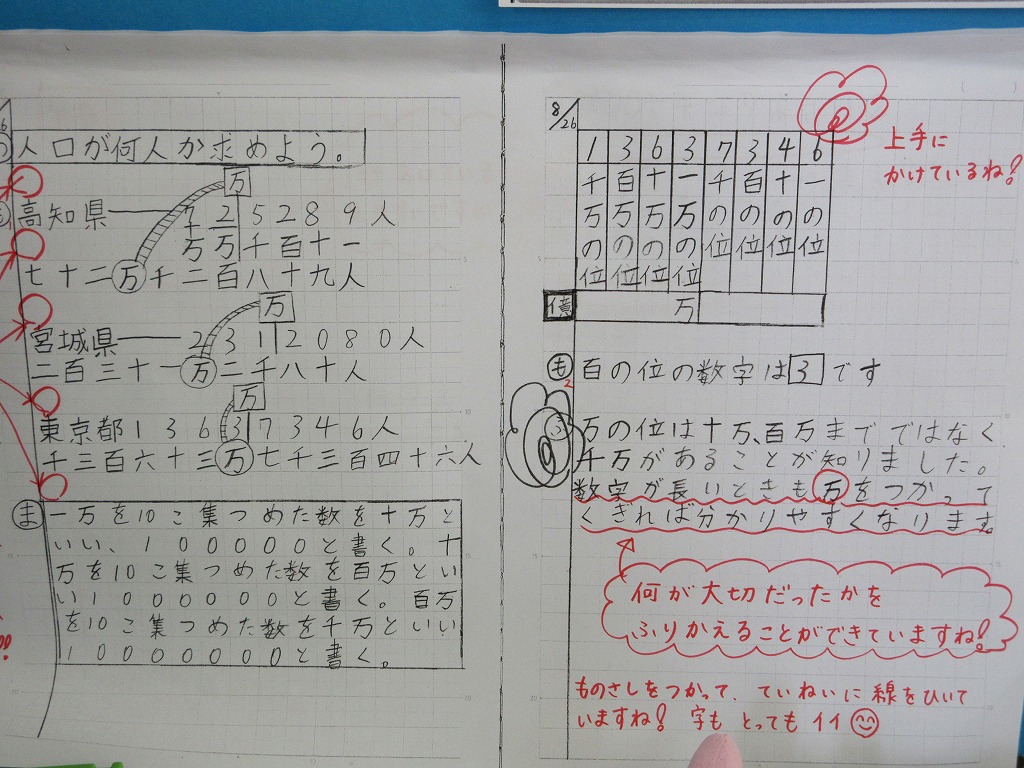 人口が何人か求めよう。
万
高知県 725289人
万万千百十一
七十二万千二百八十九人
万
宮城県 2312080人
二百三十一万二千八十人
万
東京都13637346人
千三百六十三万七千三百四十六人
ま 一万を10こ集つめた数を十万と
いい、100000と書く。十
万を10こ集つめた数を百万とい
い1000000と書く。百万
を10こ集つめた数を千万といい
10000000と書く。
8/26
1 3 6 3 7 3 4 6
千万の位 百万の位 十万の位 一万の位 千の位 百の位 十の位 一の位
億 万
上手に
かけているね!
も2 百の位の数字は3です
ふ 万の位は十万、百万まででではなく
千万があることが知りました。
数字が長いときも万をつかって
くぎれば分かりやすくなります。
何が大切だったかを
ふりかえることができていますね!
ものさしをつかって、ていねいに線をひいて
いますね! 字もとってもイイ